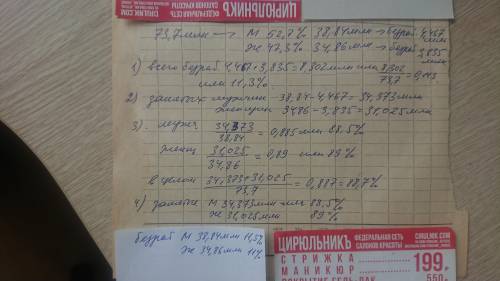 ЦИРЮЛЬНИКЪ
САЛОНОВ КРАСОТЫ
CIRULNIK.COM
73,7 млн М 52,7% 38,84 млн → безраб 4,467 млн
Ж 47,3% 34,86 млн → безраб 3,835 млн
1) всего безраб 4,467+3,835=8,302 млн или 8,302/73,7 = 0,113
или 11,3%
2) занятых мужчин - 38,84-4,467=34,373 млн
женщин 34,86-3,835=31,025 млн
3) мужч 34,373/38,84 = 0,885 или 88.5%
женщ 31,025/34,86 = 0,89 или 89%
в целом 34,373+31,025/73,7 = 0,887 = 88,7%
4) занятые М 34,373 млн или 88.5%
Ж 31,025 млн 89%
безраб М 38,84 млн 11,5%
Ж 34,86 млн 11%
ЦИРЮЛЬНИКЪ ФЕДЕРАЛЬНАЯ СЕТЬ САЛОНОВ КРАСОТЫ CIRULNIK.COM
СТРИЖКА 199.
МАНИКЮР
ПОКРЫТИЕ ГЕЛЬ-ЛАК 550